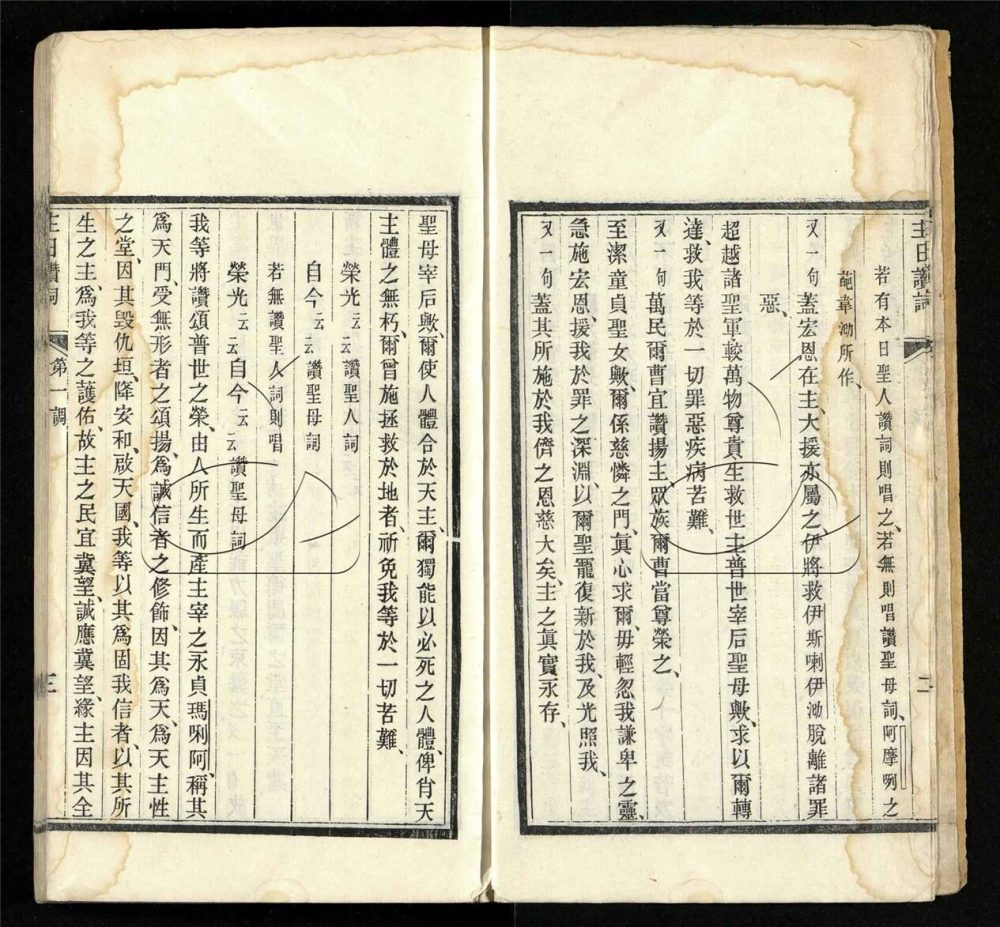 主日讚詞
二
若有本日聖人讚詞則唱之、若無則唱讚聖母詞、阿摩唎之
葩韋泑所作、
又一句蓋宏恩在主、大援亦屬之伊將救伊斯喇伊泑脫離諸罪
惡、
超越諸聖軍較萬物尊貴生救世主普世宰后聖母歟、求以爾轉
達、救我等於一切罪惡疾病苦難、
又一句萬民爾曹宜讚揚主眾族爾曹當尊榮之、
至潔童貞聖女歟、爾係慈憐之門、眞心求爾、毋輕忽我謙卑之靈、
急施宏恩、援我於罪之深淵、以爾聖寵復新於我、及光照我、
又一句蓋其所施於我儕之恩慈大矣、主之眞實永存、
聖母宰后歟爾使人體合於天主、爾獨能以必死之人體、俾肖天
主體之無朽、爾曾施拯救於地者、祈免我等於一切苦難、
榮光云云讚聖人詞
自今云云讚聖母詞
若無讚聖人詞則唱
榮光云云自今云云讚聖母詞
我等將讚頌普世之榮、由人所生而產主宰之永貞瑪唎阿、稱其
爲天門、受無形者之頌揚、爲誠信者之修飾、因其爲天、爲天主性
之堂、因其毀仇垣、降安和、啟天國、我等以其爲固我信者、以其所
生之主、爲我等之護佑、故主之民宜冀望、誠應冀望、緣主因其全
主日讚詞
第一調
三